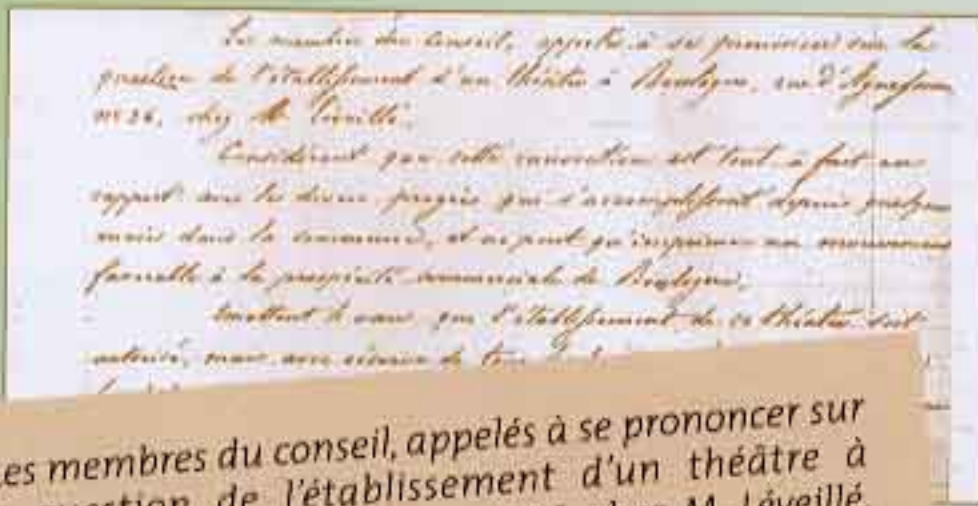 Les membres du conseil, appelés à se prononcer sur la
question de l'établissement d'un théâtre à Boulogne, rue d'Aguesseau
nº 26, chez M.
Considérant que cette innovation est tout à fait en
rapport avec les divers progrès qui s'accomplissent depuis quelques
mois dans la commune, et ne peut qu'imprimer un mouvement
favorable à la prospérité commerciale de Boulogne,
émettent le vœu que l'établissement de ce théâtre soit
autorisé, mais avec réserve de tous
es membres du conseil, appelés à se prononcer sur
de l'établissement d'un théâtre à
M. Léveillé,